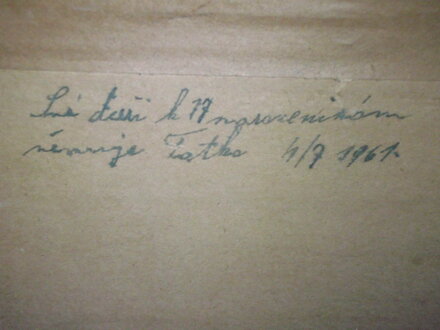 Své dceři k 17 narozeninám
věnuje Tatka 4/7 1961.